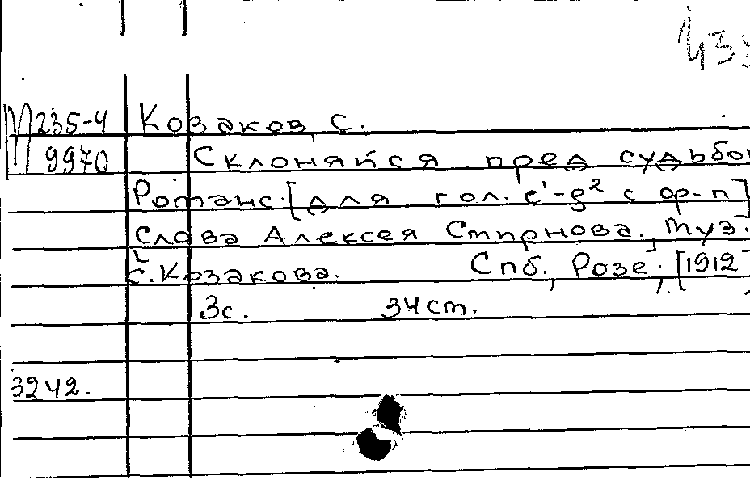 43
М235-4 Козаков, С.
9970 Склоняйся пред судьбо
Романс. [для гол. e¹-g² с ф-п]
Слова Алексея Смирнова, муз.
С. Козакова. Спб, Розе, [1912]
3с. 34 ст.
3242.